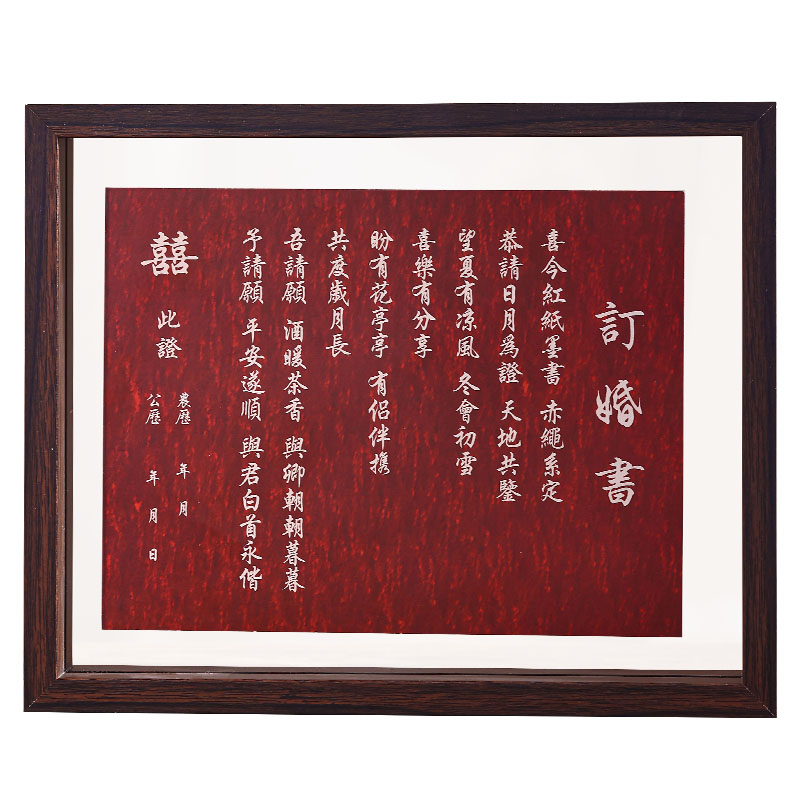 訂婚書
喜今紅紙墨書 赤繩系定
恭請日月為證 天地共鑒
望夏有涼風 冬會初雪
喜樂有分享
盼有花亭亭 有侶伴携
共度歲月長
吾請願 酒暖茶香 與卿朝朝暮暮
予請願 平安遂順 與君白首永偕
囍 此證
農歷 年 月
公歷 年 月 日